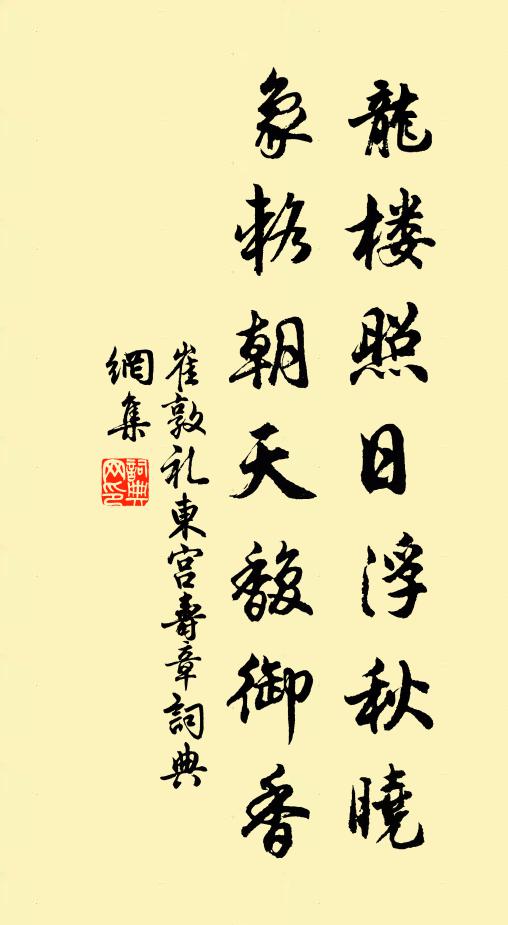 龍楼照日浮秋曉
象輅朝天馥御香
崔敦礼東宫壽章詞典
網集
詞典網印